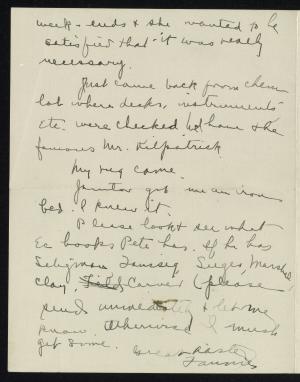 week-ends & she wanted to be
satisfied that it was really
necessary.
Just came back from chem
lab where desks, instruments
etc. were checked. I have the
famous Mr. Kilpatrick
My rug came.
Janitor got me an iron
bed. I knew it.
Please look & see what
Ec books Pete has. If he has
Seligman, Taussig, Seager, Marshall,
Clay, Carver (please
send immediately & let me
know. Otherwise I must
get some.
Great haste